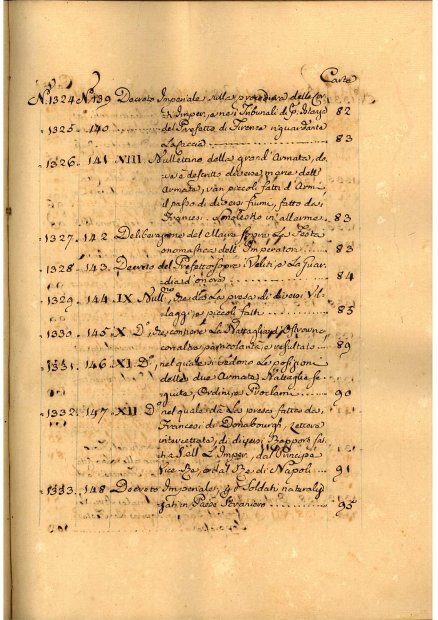 Carte
N. 1324 N. 139 Decreto Imperiale sulla procedura delle
Imper. e nei Tribunali di p. 82
1325 140 del Prefetto di Firenze riguardante
La caccia 83
1326. 141. VIII. Bullettino della grand'Armata, do
ve è descritto diverse mosse dell'
Armata, vari piccoli fatti d'Armi,
il passo di diversi fiumi, fatto dai
Francesi 83
1327. 142. Deliberazione del Maire sopra La Festa
onomastica dell'Imperatore 83
1328 143. Decreto del Prefetto sopra i Veliti, e La Guar
dia d'onore 84
1329 144. IX. Bull. che dà La presa di diversi Vil
laggi, e piccoli fatti 85
1330. 145. X. D.o che contiene La Battaglia di
con altre particolarità, e resultato 89
1331. 146. XI. D.o nel quale si vedono Le posizioni
delle due Armate, Battaglie se
guite, Ordini, e Proclami 90
1332. 147. XII D.o nel quale dà La presa fatta dai
Francesi di Lettera
intercettata di diversi Rapporti fat
ti a S. M. L'Imper. dal Principe
Vice-Re, e dal Re di Napoli 91
1333. 148 Decreto Imperiale Soldati naturaliz
zati in Paese straniero 95